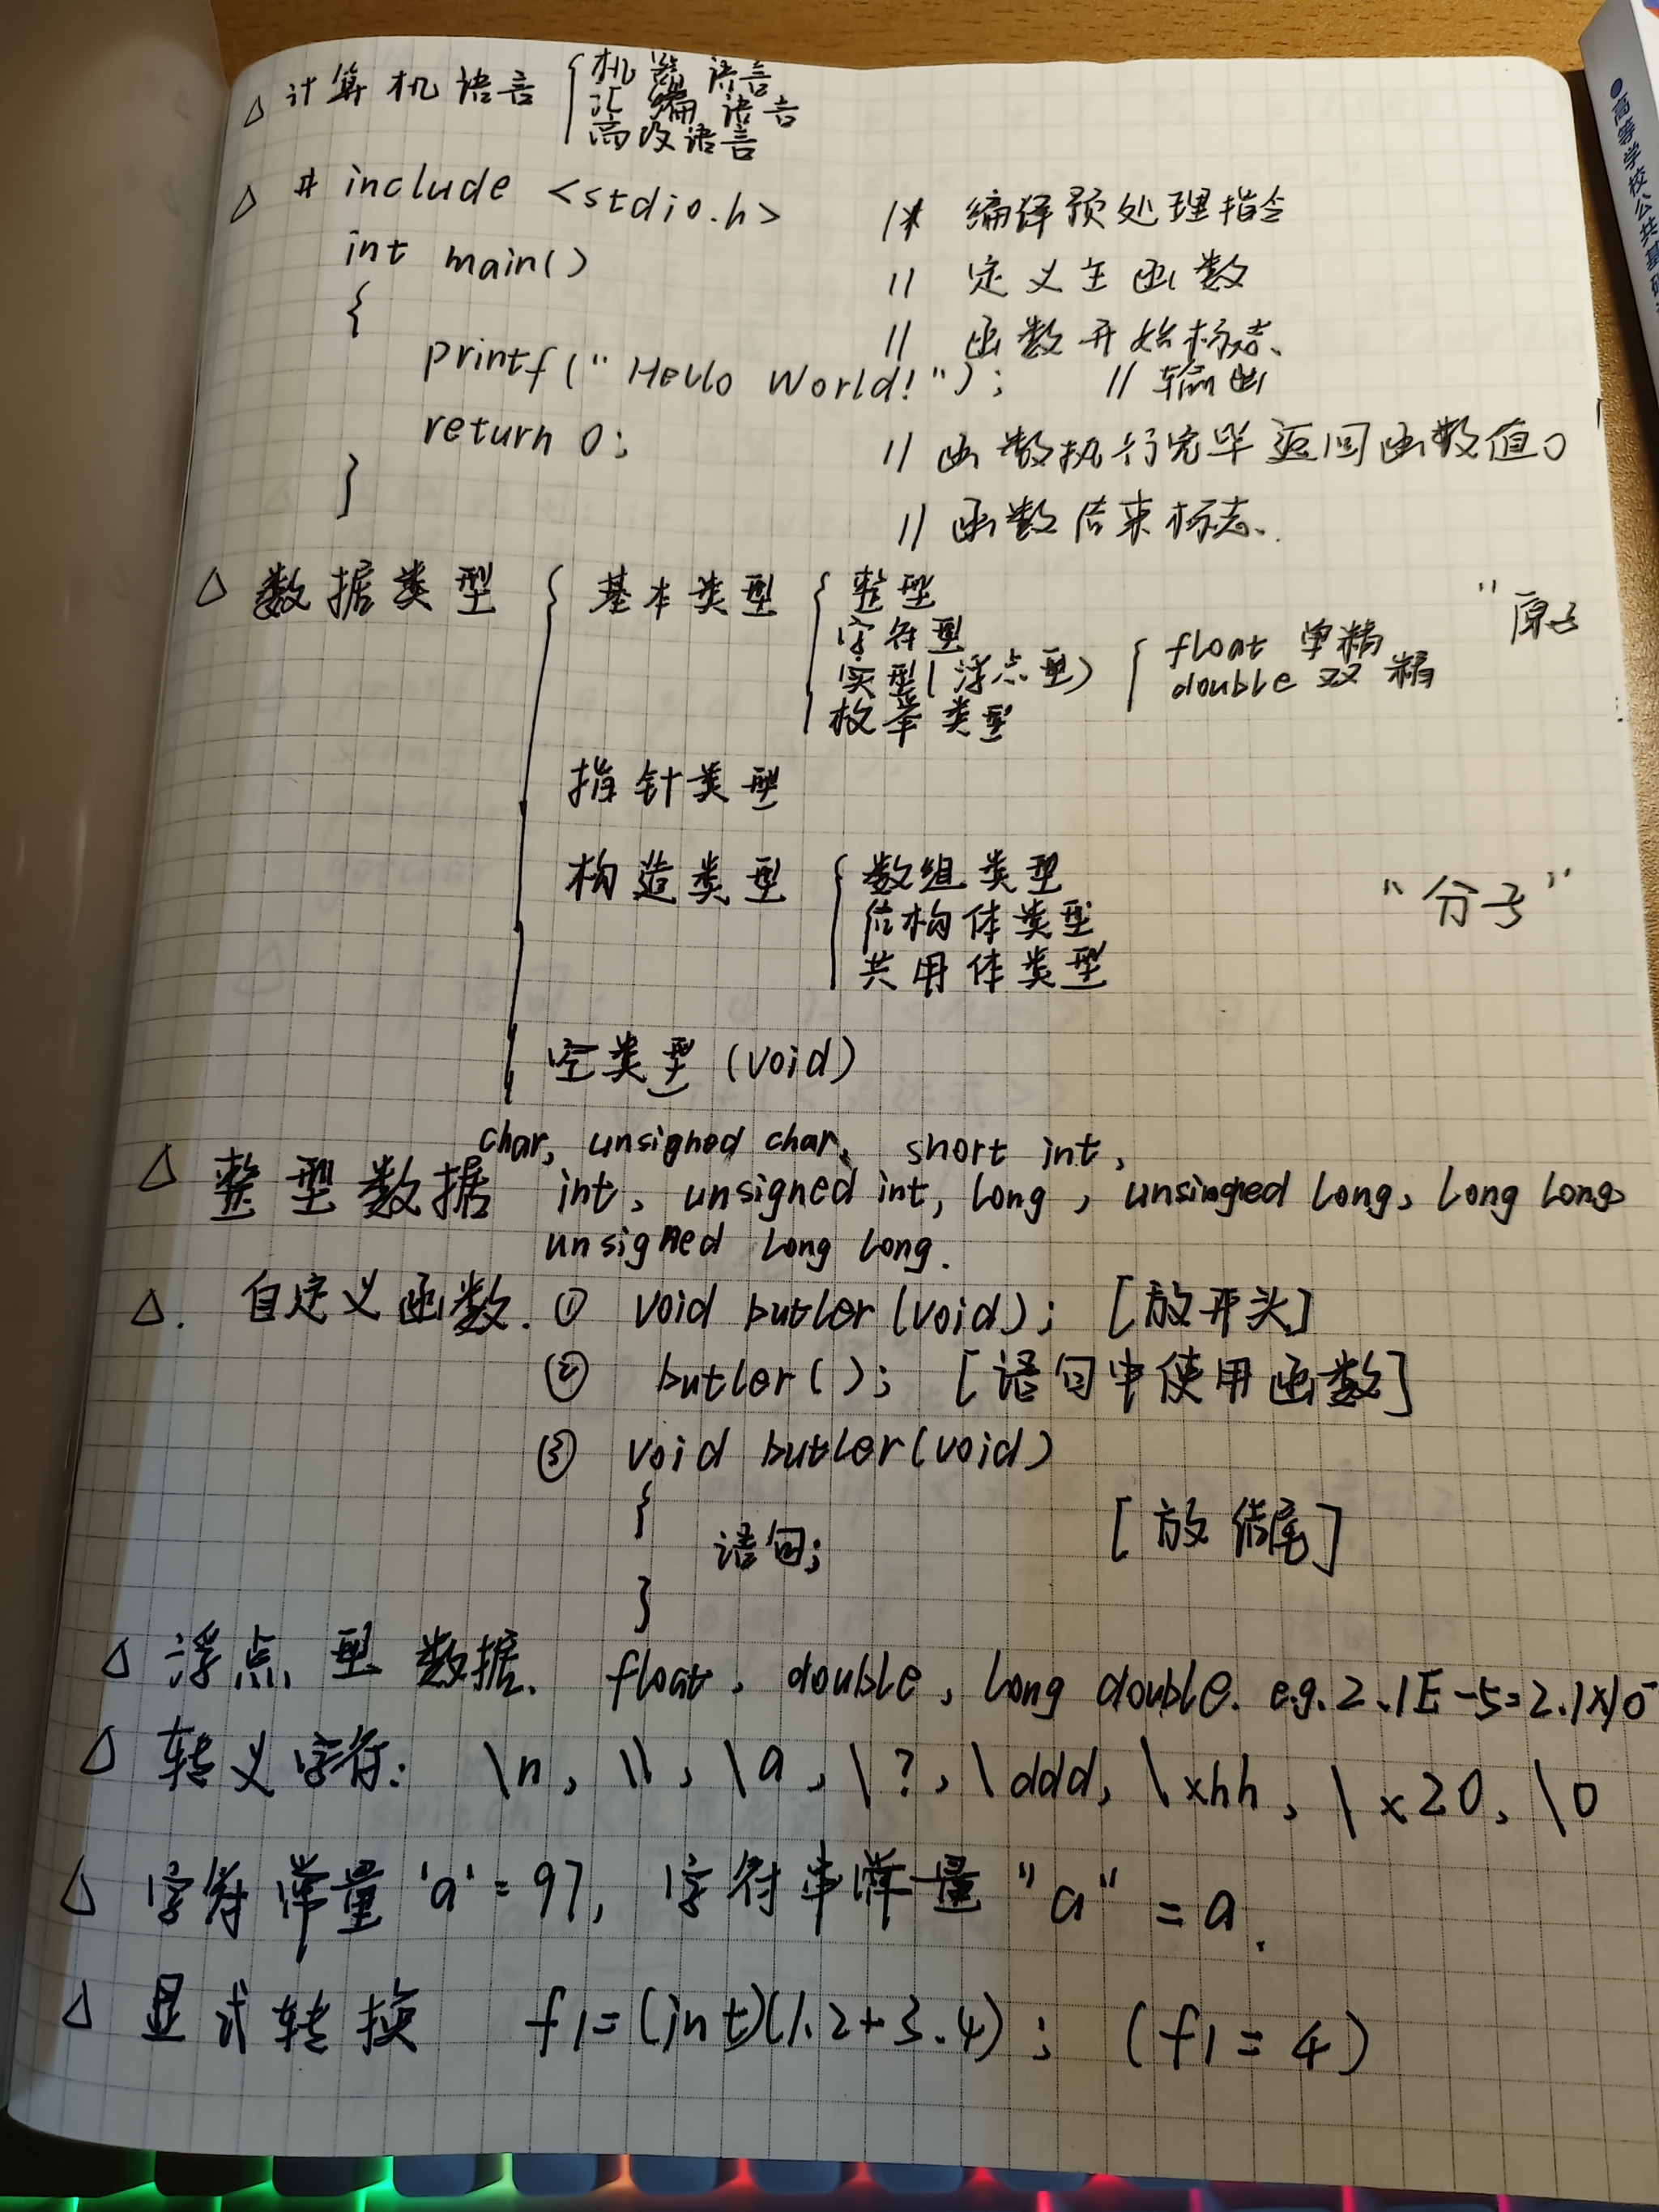 △ 计算机语言 { 机器语言
汇编语言
高级语言
△ # include <stdio.h> /* 编译预处理指令
int main() // 定义主函数
{ // 函数开始标志、
printf("Hello World!"); // 输出
return 0; // 函数执行完毕返回函数值0
} // 函数结束标志、.
△ 数据类型 { 基本类型 { 整型
字符型 "原子
实型(浮点型) { float 单精
double 双精
枚举类型
指针类型
构造类型 { 数组类型
结构体类型 "分子"
共用体类型
空类型 (void)
△ 整型数据 char, unsigned char, short int,
int, unsigned int, long, unsingned long, long long
unsigned long long.
△. 自定义函数. ① void butler(void); [放开头]
② butler(); [语句中使用函数]
③ void butler(void)
{
语句; [放结尾]
}
△ 浮点型数据、 float, double, long double. e.g. 2.1E-5=2.1×10-
△ 转义字符: \n, \\, \a, \?, \ddd, \xhh, \x20, \0
△ 字符常量 'a'=97, 字符串常量 "a" = a.
△ 显式转换 f1=(int)(1.2+3.4); (f1=4)
●高等学校公共基础